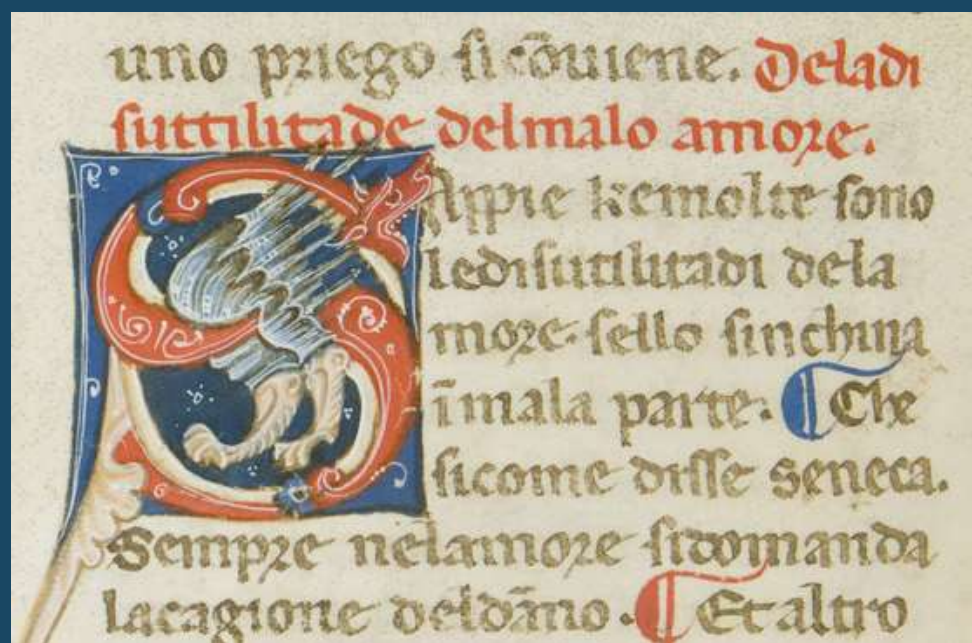 uno priego si cōuiene. Deladi
suttilitade delmalo amore.
SAppie kemolte sono
ledisutilitadi dela
more. sello sinchina
ī mala parte. ¶ Che
sicome disse seneca.
Sempre nelamore sidomanda
lacagione deldāno. ¶ Et altro